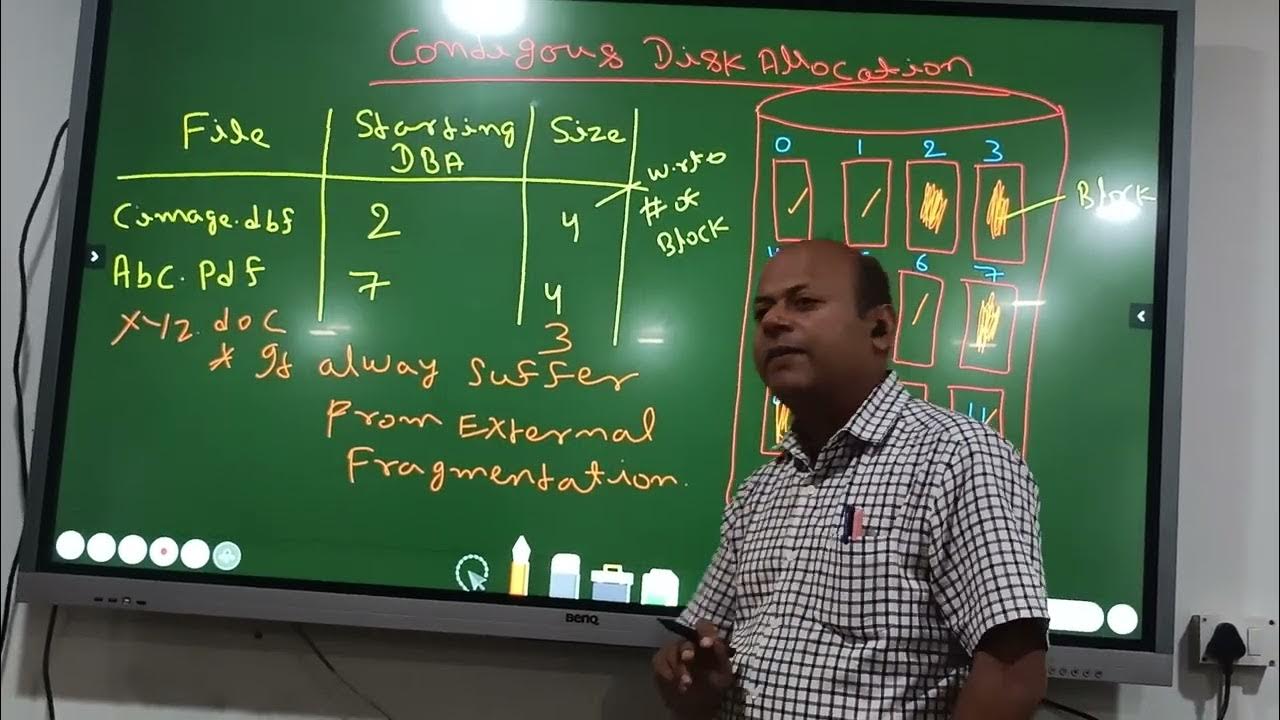 Contigous Disk Allocation
File Starting DBA Size
w.r.to # of Block
Cimage.dbf 2 4
Abc.Pdf 7 4
XYZ.doc — 3 —
* It alway suffer
From External
Fragmentation.
0 1 2 3
Block
4 6 7
11
BenQ